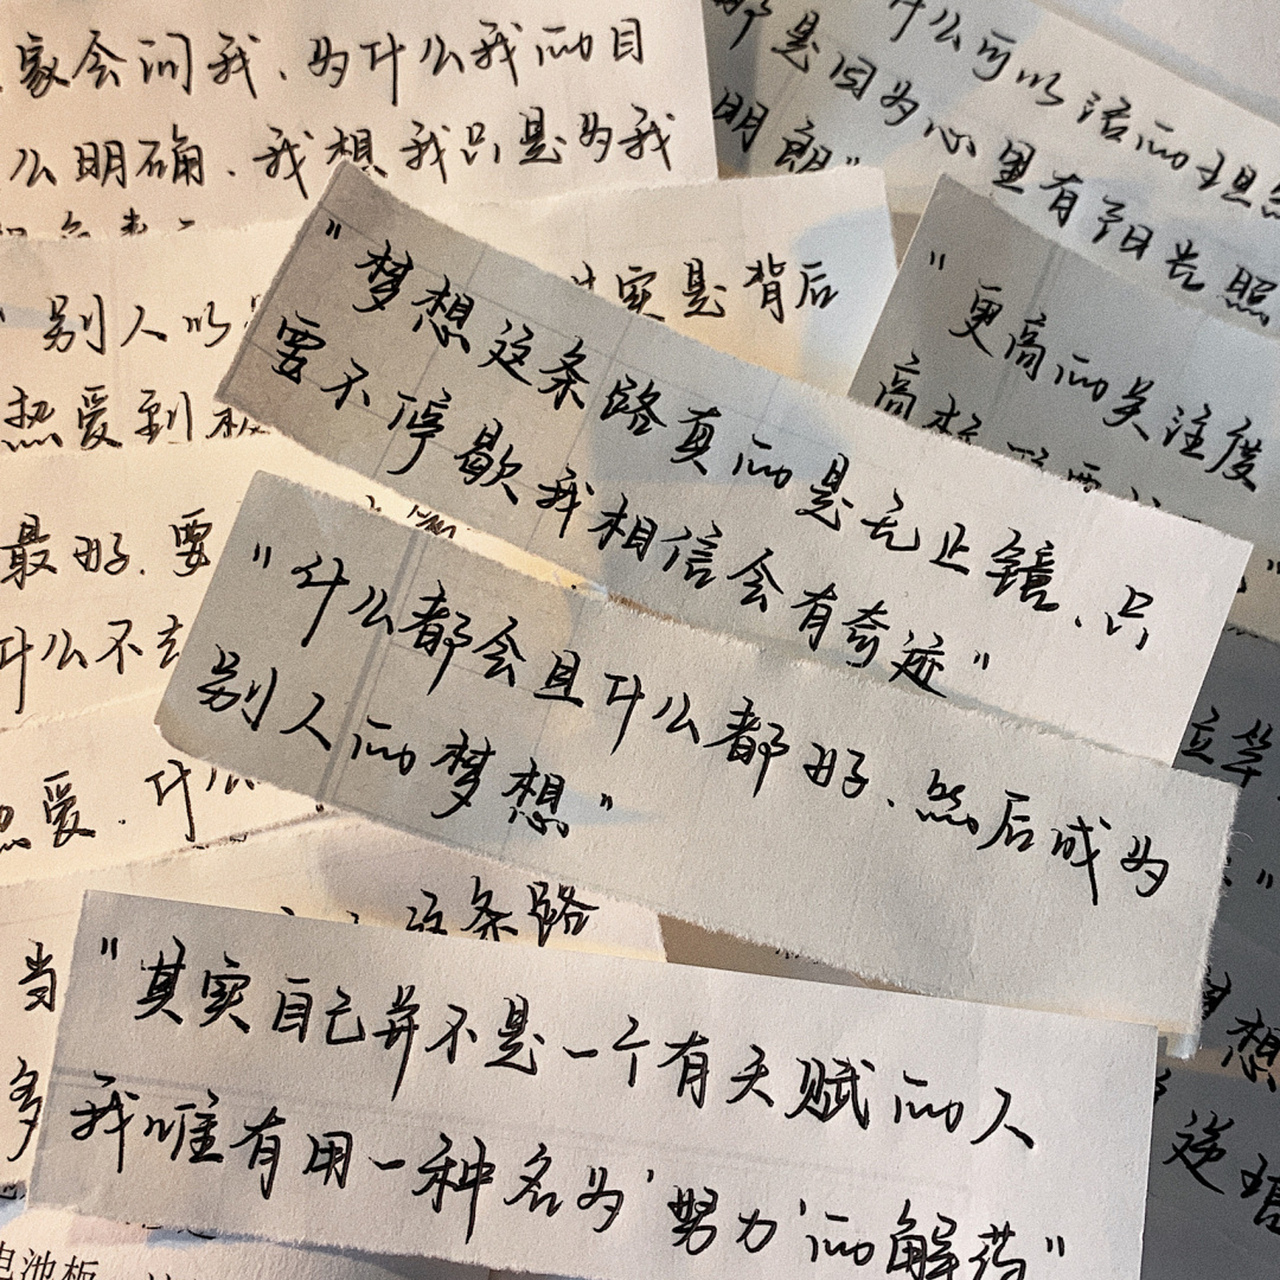 家会问我、为什么我的目
么明确、我想我只是为我
什么可以活的坦
都是因为心里有阳光照
明朗"
别人以
其实是背后
热爱到极
"更高的关注度
"梦想这条路真的是无止镜、只
要不停歇我相信会有奇迹"
最好、要
什么不去
"什么都会且什么都好、然后成为
别人的梦想"
热爱、什
这条路
当
"其实自己并不是一个有天赋的人
我唯有用一种名为'努力'的解药"
多
梦想
电池板